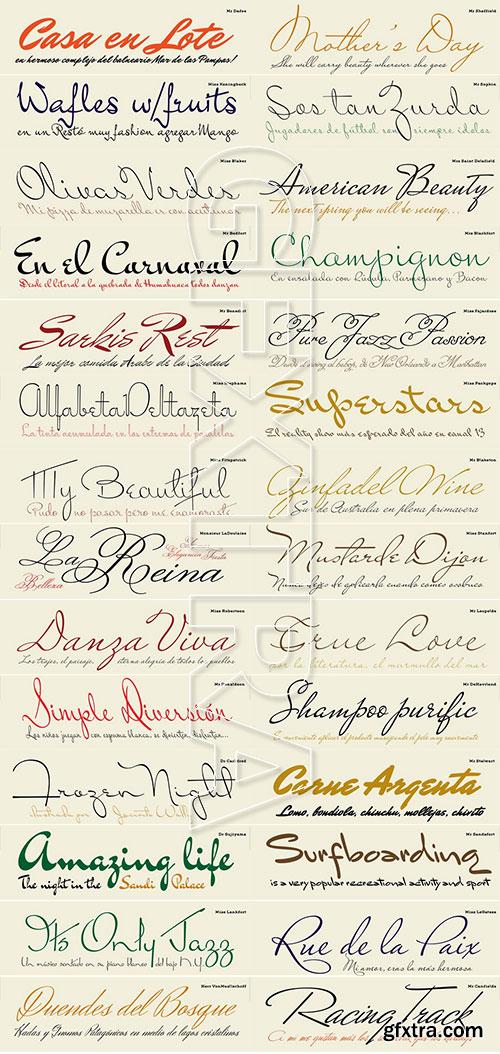 Mr Dafoe
Casa en Lote
en hermoso complejo del balneario Mar de las Pampas!
Mr Sheffield
Mother's Day
She will carry beauty wherever she goes
Miss Koenigbach
Wafles w/fruits
en un Restó muy fashion agregar Mango
Mr Sophia
Sos tan Zurda
Jugadores de fútbol son siempre ídolos
Miss Blaker
Olivas Verdes
Mi pizza de muzarella es con aceitunas
Mrs Saint Delafield
American Beauty
The next spring you will be seeing...
Mr Bedfort
En el Carnaval
Desde el litoral a la quebrada de Humahuaca todos danzan
Mrs Blackfort
Champignon
En ensalada con Rúcula, Parmesano y Bacon
Mr Benedict
Sarkis Rest
La mejor comida Arabe de la Ciudad
Miss Fajardose
Pure Jazz Passion
Desde el swing al bebop, de New Orleands a Manhattan
Miss Stephams
Alfabeta1Deltazeta
La tinta acumulada en los extremos de
Miss Packgope
Superstars
El reality show más esperado del año en canal 13
Miss Fitzpatrick
My Beautiful
Pudo no pasar pero me enamoraste
Mrs Blaketon
Zinfadel Wine
Sur de Australia en plena primavera
Monsieur LaDoulaise
La Reina
El
Elegancia Fausto
Belleza
Miss Stanfort
Mustarde Dijon
Nunca dejes de aplicarla cuando comes osobuco
Miss Robertson
Danza Viva
Los trajes, el paisaje, eterna alegria de todos los pueblos
Mr Leopolde
True Love
por la literatura, el murmullo del mar
Mr Donaldson
Simple Diversión
Los niños juegan con espuma blanca, se divierten, disfrutan...
Mr DeHaviland
Shampoo purific
Es conveniente aplicar el producto masajeando el pelo muy suavemente
Dr Carbfred
Frozen Night
Ilustrado por Jacinto Wall
Mr Stalwart
Carne Argenta
Lomo, bondiola, chinchu, mollejas, chivito
Dr Sugiyama
Amazing life
The night in the Sandi Palace
Mr Sandsfort
Surfboarding
is a very popular recreational activity and sport
Miss Lankfort
It's Only Jazz
Un músico sentado en su piano blanco del bajo N.Y.
Miss LeGatees
Rue de la Paix
Mi amor, eras la más hermosa
Herr VonMuellerhoff
Duendes del Bosque
Hadas y Gnomos Patagónicos en medio de lagos cristalinos
Mr Canfields
Racing Track
A mi me gustan más los
GFXTRA
gfxtra.com